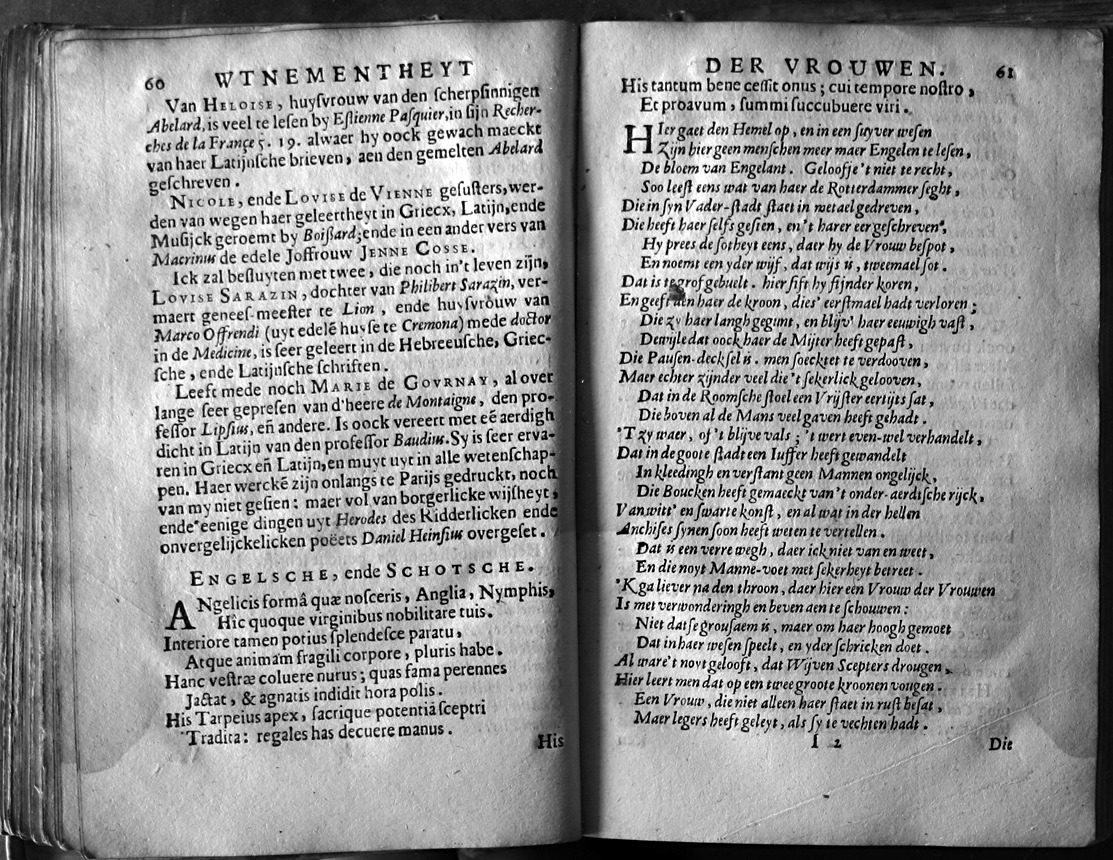 60 WTNEMENTHEYT
Van HELOISE, huyſvrouw van den ſcherpſinnigen
Abelard, is veel te leſen by Eſtienne Paſquier, in ſijn Recher-
ches de la France 5. 19. alwaer hy oock gewach maeckt
van haer Latijnſche brieven, aen den gemelten Abelard
geſchreven.
NICOLE, ende LOVISE de VIENNE geſuſters, wer-
den van wegen haer geleertheyt in Griecx, Latijn, ende
Muſijck geroemt by Boiſſard; ende in een ander vers van
Macrinus de edele Joffrouw JENNE COSSE.
Ick zal beſluyten met twee, die noch in't leven zijn,
LOVISE SARAZIN, dochter van Philibert Sarazin, ver-
maert geneeſ-meeſter te Lion, ende huyſvrouw van
Marco Offrendi (uyt edelē huyſe te Cremona) mede doctor
in de Medicine, is ſeer geleert in de Hebreeuſche, Griec-
ſche, ende Latijnſche ſchriften.
Leeft mede noch MARIE de GOVRNAY, al over
lange ſeer gepreſen van d'heere de Montaigne, den pro-
feſſor Lipſius, eñ andere. Is oock vereert met eē aerdigh
dicht in Latijn van den profeſſor Baudius. Sy is ſeer erva-
ren in Griecx eñ Latijn, en muyt uyt in alle wetenſchap-
pen. Haer werckē zijn onlangs te Parijs gedruckt, noch
van my niet geſien: maer vol van borgerlicke wijſheyt,
ende eenige dingen uyt Herodes des Ridderlicken ende
onvergelijckelicken poëets Daniel Heinſius overgeſet.
ENGELSCHE, ende SCHOTSCHE.
ANgelicis formâ quæ noſceris, Anglia, Nymphis,
Hîc quoque virginibus nobilitare tuis.
Interiore tamen potius ſplendeſce paratu,
Atque animam fragili corpore, pluris habe.
Hanc veſtræ coluere nurus; quas fama perennes
Jactat, & agnatis indidit hora polis.
His Tarpeius apex, ſacrique potentia ſceptri
Tradita: regales has decuere manus.
His
DER VROUWEN. 61
His tantum bene ceſſit onus; cui tempore noſtro,
Et proavum, ſummi ſuccubuere viri.
HIer gaet den Hemel op, en in een ſuyver weſen
Zijn hier geen menſchen meer maer Engelen te leſen,
De bloem van Engelant. Geloofje 't niet te recht,
Soo leeſt eens wat van haer de Rotterdammer ſeght,
Die in ſyn Vader-ſtadt ſtaet in metael gedreven,
Die heeft haer ſelfs geſien, en 't harer eer geſchreven,
Hy prees de ſotheyt eens, daer hy de Vrouw beſpot,
En noemt een yder wijf, dat wijs is, tweemael ſot.
Dat is te grof gebuelt. hier ſift hy fijnder koren,
En geeft aen haer de kroon, dies' eerſtmael hadt verloren;
Die zy haer langh gegunt, en blijv' haer eeuwigh vaſt,
Dewijle dat oock haer de Mijter heeft gepaſt,
Die Pauſen-deckſel is. men ſoecktet te verdooven,
Maer echter zijnder veel die 't ſekerlick gelooven,
Dat in de Roomſche ſtoel een Vrijſter eertijts ſat,
Die boven al de Mans veel gaven heeft gehadt.
'T zy waer, of 't blijve vals; 't wert even-wel verhandelt,
Dat in de goote ſtadt een Iuffer heeft gewandelt
In kleedingh en verſtant geen Mannen ongelijck,
Die Boucken heeft gemaeckt van 't onder-aerdtſche rijck,
Van witt' en ſwarte konſt, en al wat in der hellen
Anchiſes ſynen ſoon heeft weten te vertellen.
Dat is een verre wegh, daer ick niet van en weet,
En die noyt Manne-voet met ſekerheyt betreet.
'K ga liever na den throon, daer hier een Vrouw der Vrouwen
Is met verwonderingh en beven aen te ſchouwen:
Niet datſe grouſaem is, maer om haer hoogh gemoet
Dat in haer weſen ſpeelt, en yder ſchricken doet.
Al ware't noyt gelooft, dat Wijven Scepters drougen,
Hier leert men dat op een twee groote kroonen vougen.
Een Vrouw, die niet alleen haer ſtaet in ruſt beſat,
Maer legers heeft geleyt, als ſy te vechten hadt.
I 2 Die